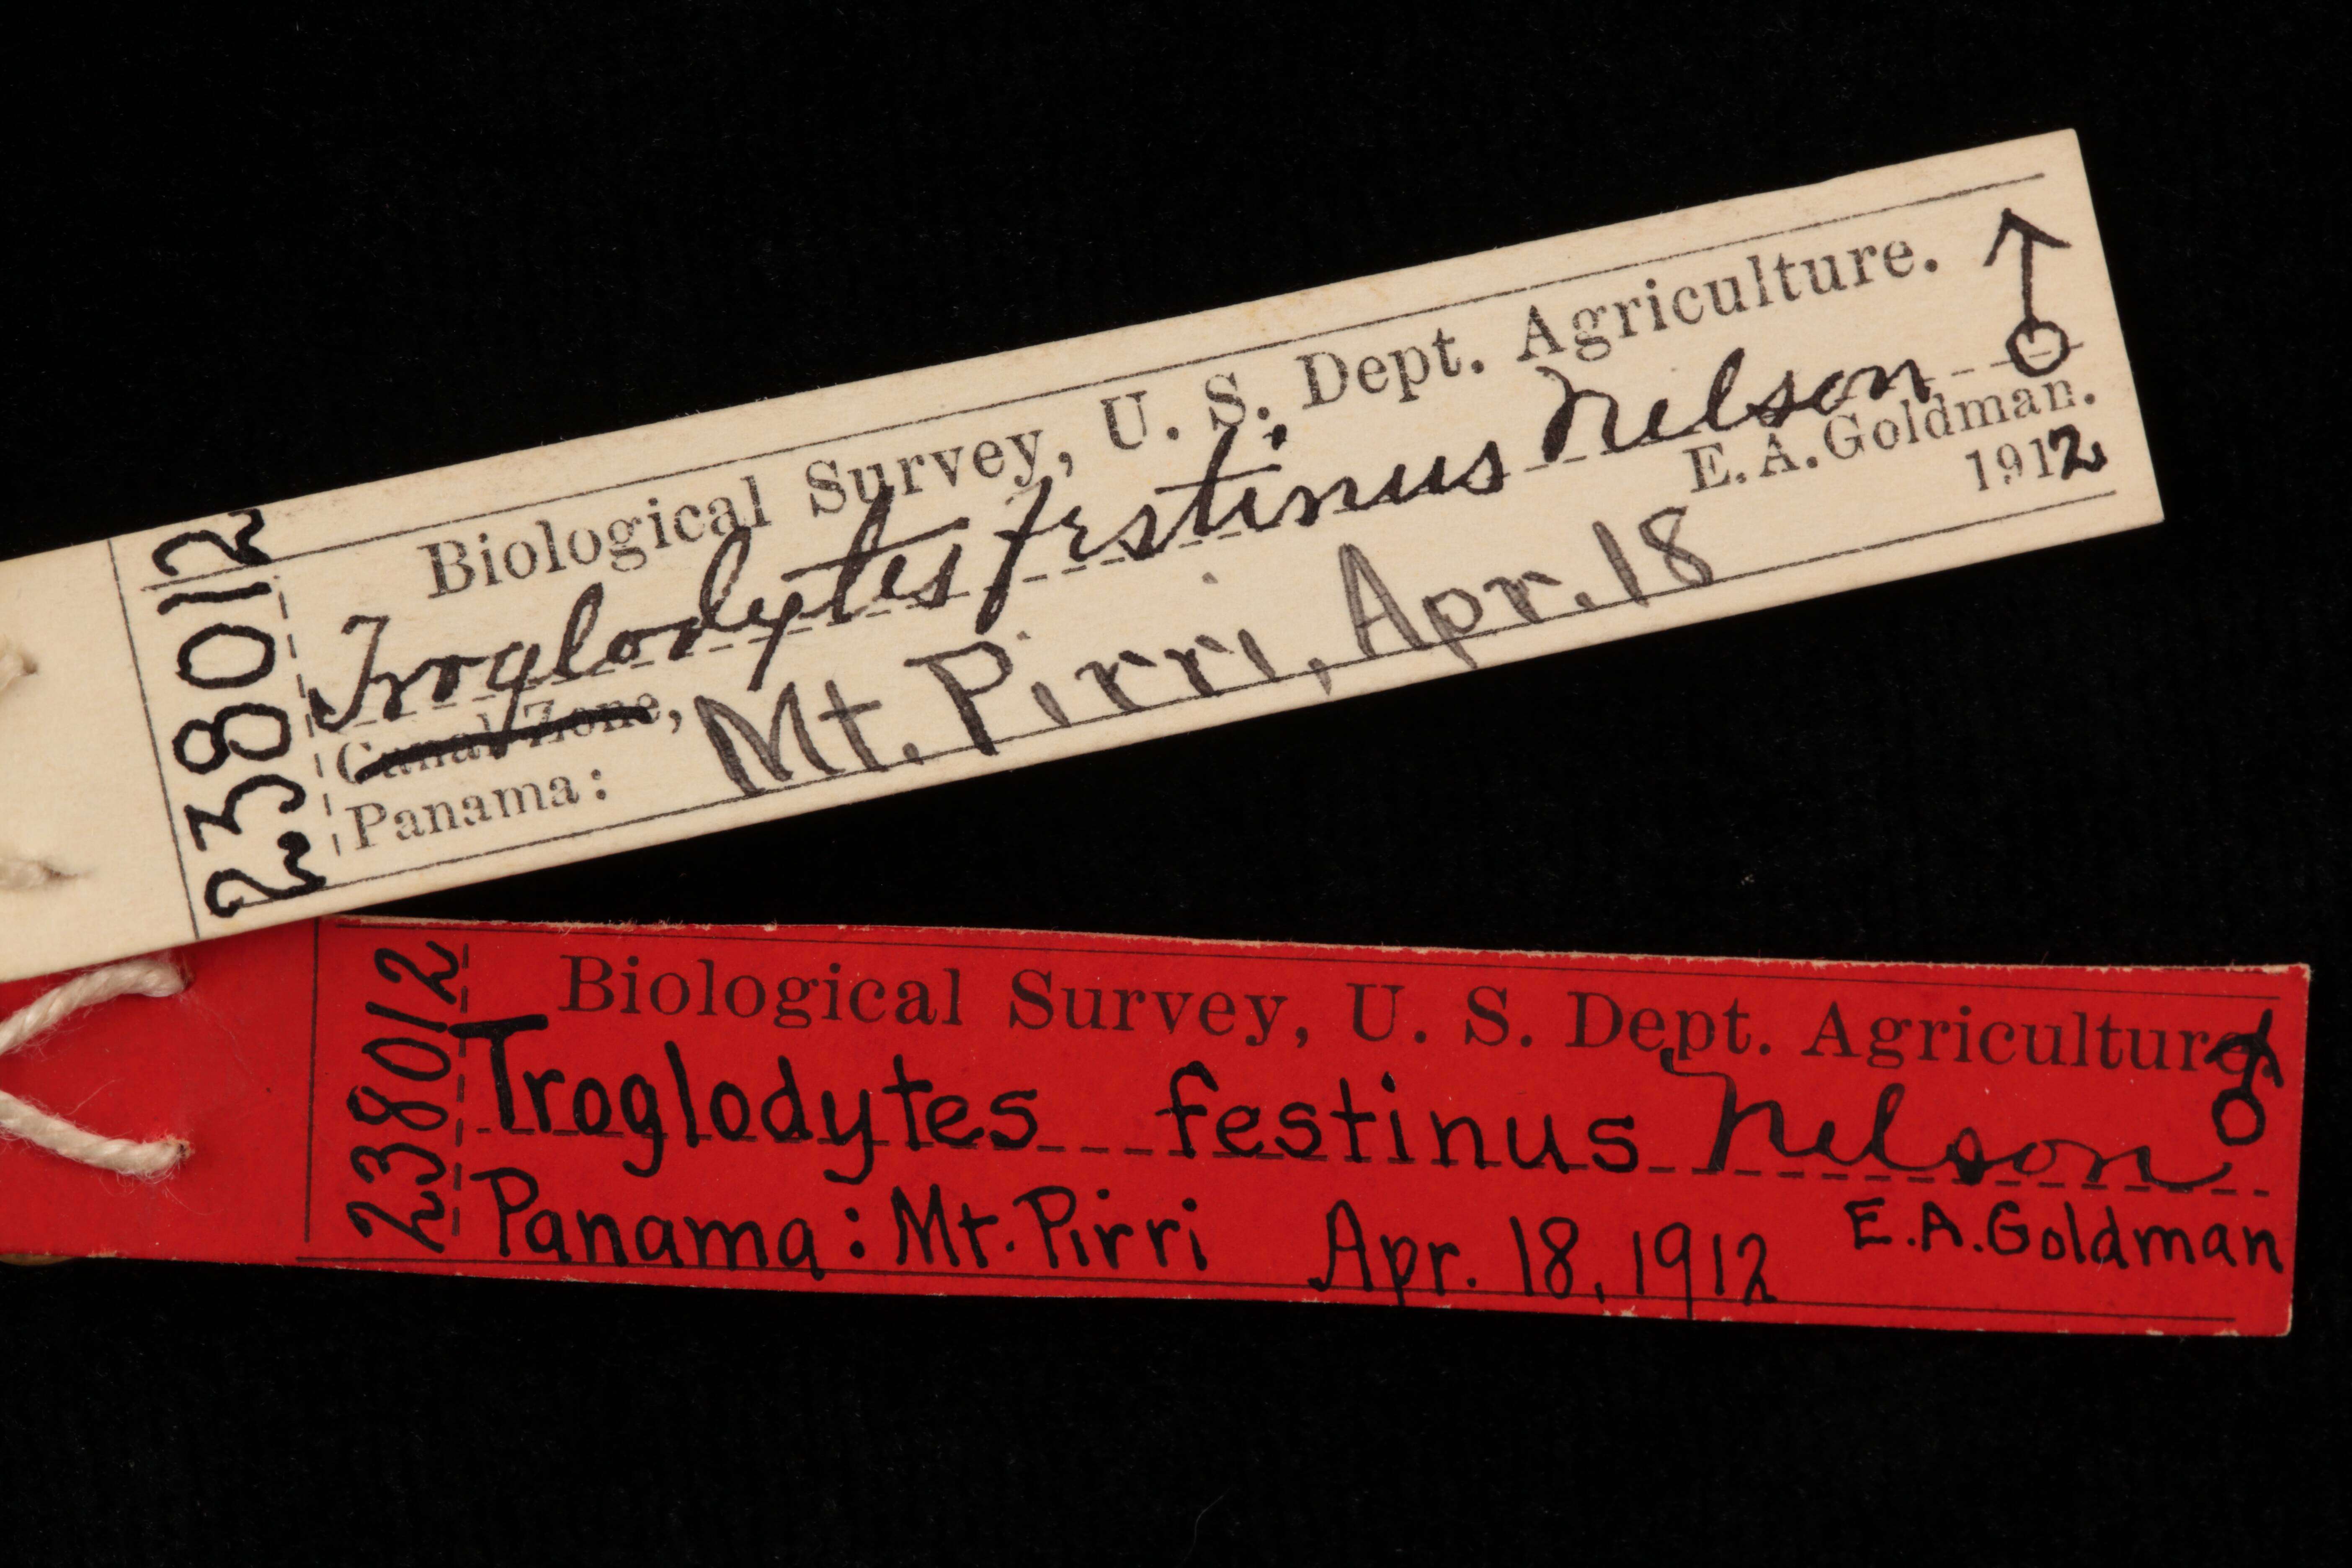 238012
Biological Survey, U. S. Dept. Agriculture. ♂
Troglodytes festinus Nelson
E. A. Goldman.
Canal Zone,
1912
Panama: Mt. Pirri, Apr. 18
238012
Biological Survey, U. S. Dept. Agriculture. ♂
Troglodytes festinus Nelson
Panama: Mt. Pirri Apr. 18, 1912 E.A.Goldman